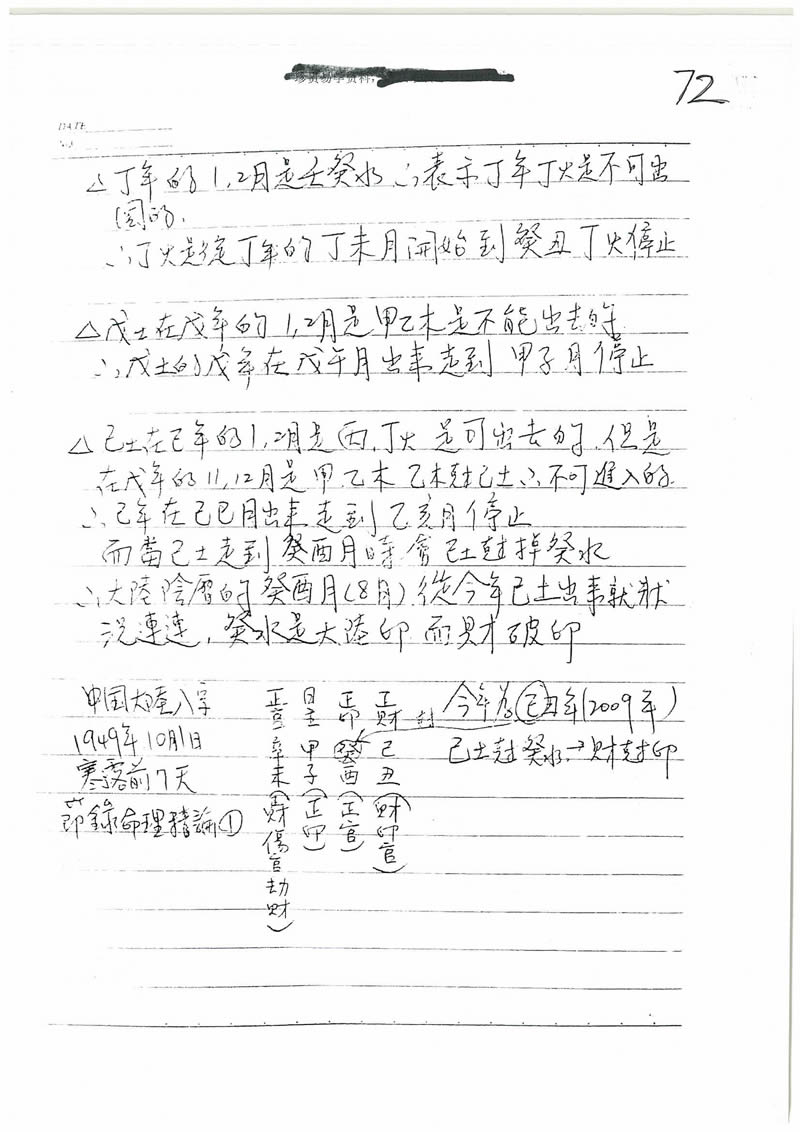 珍贵易学资料,
72
DATE
NO
△丁年的1,2月是壬癸水∴表示丁年丁火是不可出
国的.
∴丁火是從丁年的丁未月開始到癸丑丁火停止
△戊土在戊年的1,2月是甲乙木是不能出去的
∴戊土的戊年在戊午月出来走到甲子月停止
△己土在己年的1,2月是丙.丁火是可出去的.但是
在戊年的11,12月是甲乙木乙木尅己土∴不可進入的
∴己年在己巳月出来走到乙亥月停止
而當己土走到癸酉月時會己土尅掉癸水
∴大陸陰曆的癸酉月(8月)從今年己土出事就狀
況連連,癸水是大陸印而財破印
中国大陸八字
1949年10月1日
寒露前7天
節錄命理精論①
正財己丑(財印官)
正印癸酉(正官)
日主甲子(正印)
正官辛未(財傷官劫財)
尅
今年為己丑年(2009年)
己土尅癸水→財尅印